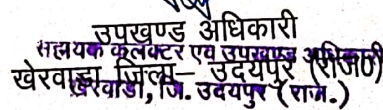 उपखण्ड अधिकारी
सहायक कलक्टर एवं उपखण्ड अधिकारी
खेरवाड़ा जिला– उदयपुर (राज0)
खेरवाड़ा, जि. उदयपुर (राज.)